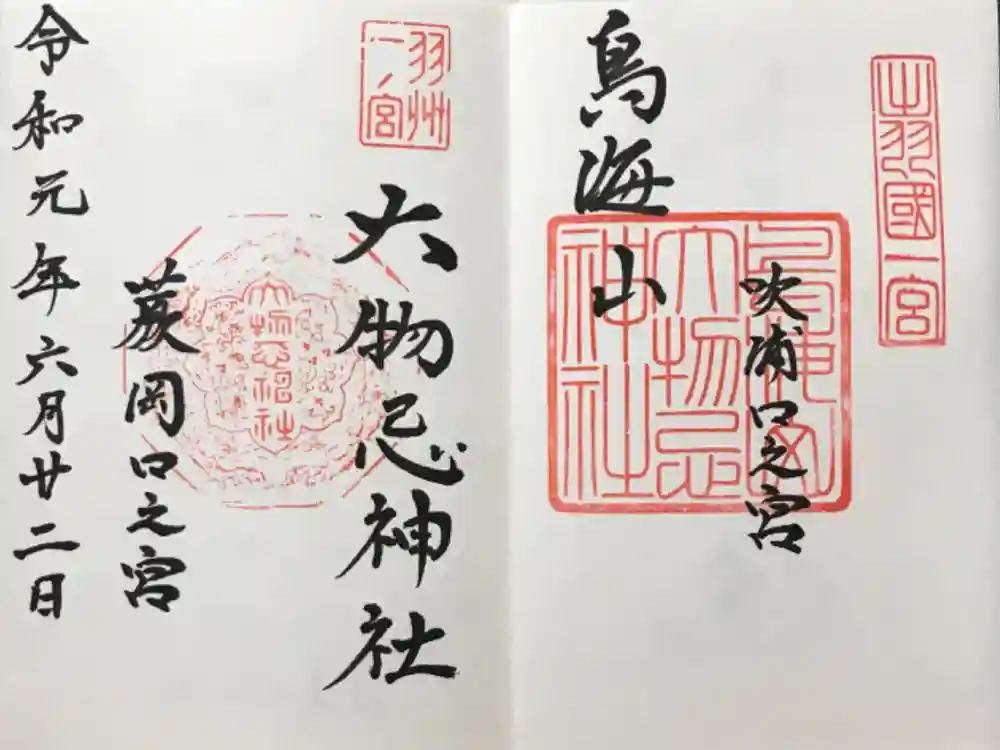 出羽國一宮
鳥海山
吹浦口之宮
神社
六物忌
羽州
一ノ宮
大物忌神社
蕨岡口之宮
令和元年六月廿二日